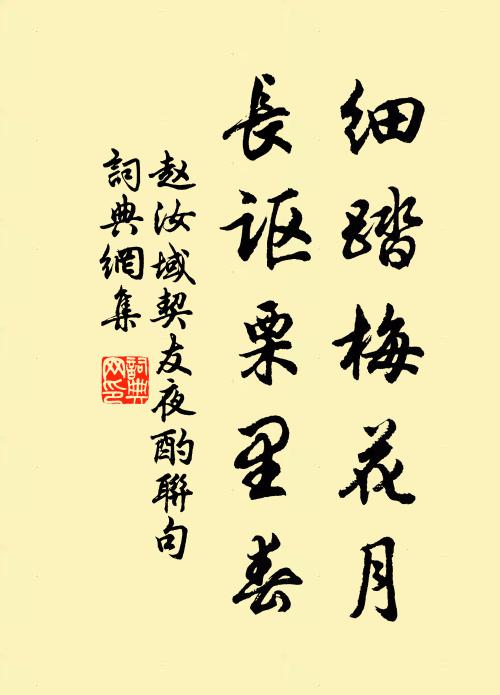 细踏梅花月
長讴栗里春
赵汝域契友夜酌聯句
詞典網集
詞典网印